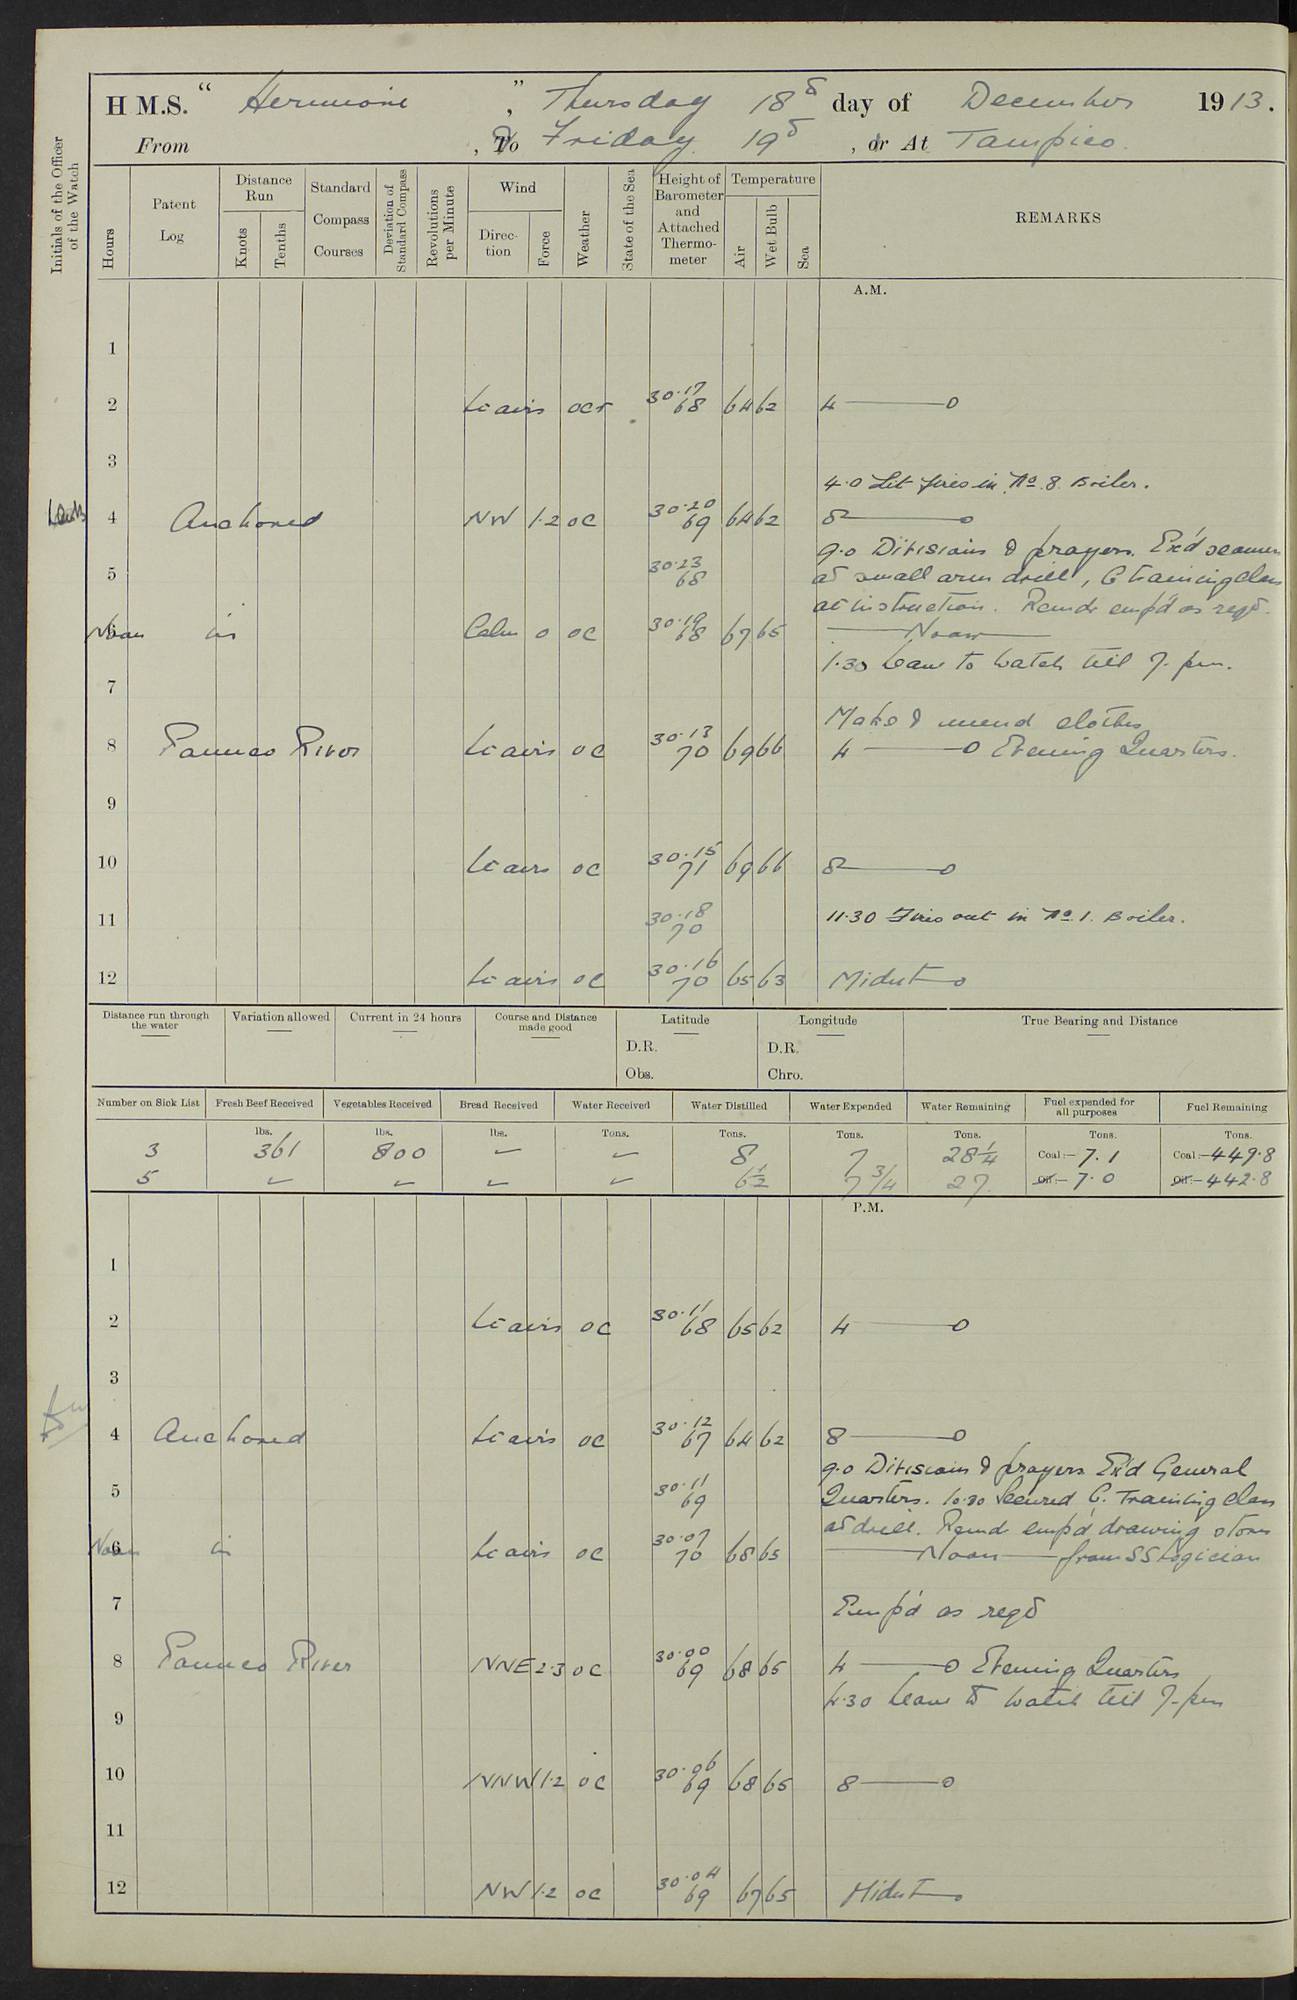 H M.S. " Hermione ", Thursday 18th day of December 1913.
From , To & Friday 19th , or At Tampico.
Initials of the Officer of the Watch
Hours
Patent Log
Distance Run
Knots
Tenths
Standard Compass Courses
Deviation of Standard Compass
Revolutions per Minute
Wind
Direc-tion
Force
Weather
State of the Sea
Height of Barometer and Attached Thermo-meter
Temperature
Air
Wet Bulb
Sea
REMARKS
A.M.
1
2 Lt airs ocr 30.17 68 64 62 4 —— o
3
4.0 Lit fires in No. 8. Boiler.
4 Anchored NW 1.2 oc 30.20 69 64 62 8 —— o
9.0 Divisions & prayers. Ex'd seamen
5 30.23 68 at small arm drill, G training class
at instruction. Remdr emp'd as reqd.
6 Noon in Calm o oc 30.19 68 67 65 —— Noon ——
1.30 Leave to Watch till 7. pm.
7
Make & mend clothes
8 Panuco River Lt airs oc 30.13 70 69 66 4 —— o Evening Quarters.
9
10 Lt airs oc 30.15 71 69 66 8 —— o
11 30.18 70 11.30 Fires out in No. 1. Boiler.
12 Lt airs oc 30.16 70 65 63 Midnt — o
Distance run through the water
Variation allowed
Current in 24 hours
Course and Distance made good
Latitude
D.R.
Obs.
Longitude
D.R.
Chro.
True Bearing and Distance
Number on Sick List Fresh Beef Received Vegetables Received Bread Received Water Received Water Distilled Water Expended Water Remaining Fuel expended for all purposes Fuel Remaining
lbs. lbs. lbs. Tons. Tons. Tons. Tons. Tons. Tons.
3 361 800 – – 8 7 28 1/4 Coal:– 7.1 Coal:– 449.8
5 – – – – 6 1/2 7 3/4 27 Oil:– 7.0 Oil:– 442.8
P.M.
1
2 Lt airs oc 30.11 68 65 62 4 —— o
3
4 Anchored Lt airs oc 30.12 67 64 62 8 —— o
9.0 Divisions & prayers Ex'd General
5 30.11 69 Quarters. 10.30 Secured G. Training class
at drill. Remdr emp'd drawing stores
6 Noon in Lt airs oc 30.07 70 68 65 —— Noon —— from SS Logician
7 Emp'd as reqd
8 Panuco River NNE 2.3 oc 30.00 69 68 65 4 —— o Evening Quarters
4.30 Leave to Watch till 7. pm
9
10 NNW 1.2 oc 30.06 69 68 65 8 —— o
11
12 NW 1.2 oc 30.04 69 67 65 Midnt — o